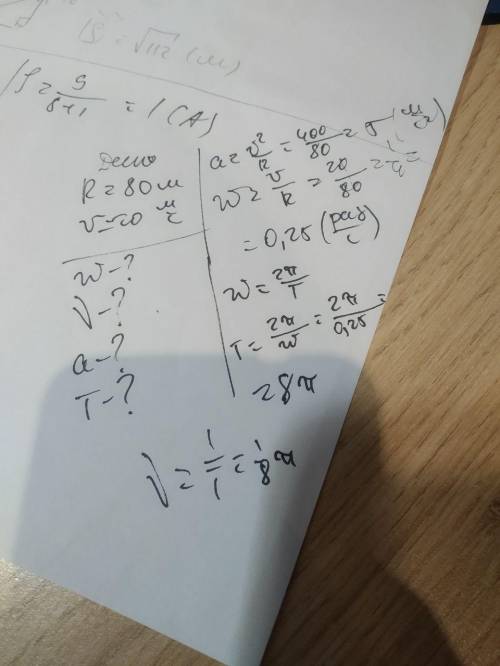 |S| = √112 (м)
I = 9/(8+1) = 1 (А)
Дано
R = 80 м
v = 20 м/с
w - ?
ν - ?
a - ?
T - ?
a = v²/R = 400/80 = 5 (м/с²)
w = v/R = 20/80 = 1/4 =
= 0,25 (рад/с)
w = 2π/T
T = 2π/w = 2π/0,25 =
= 8π
ν = 1/T = 1/8π